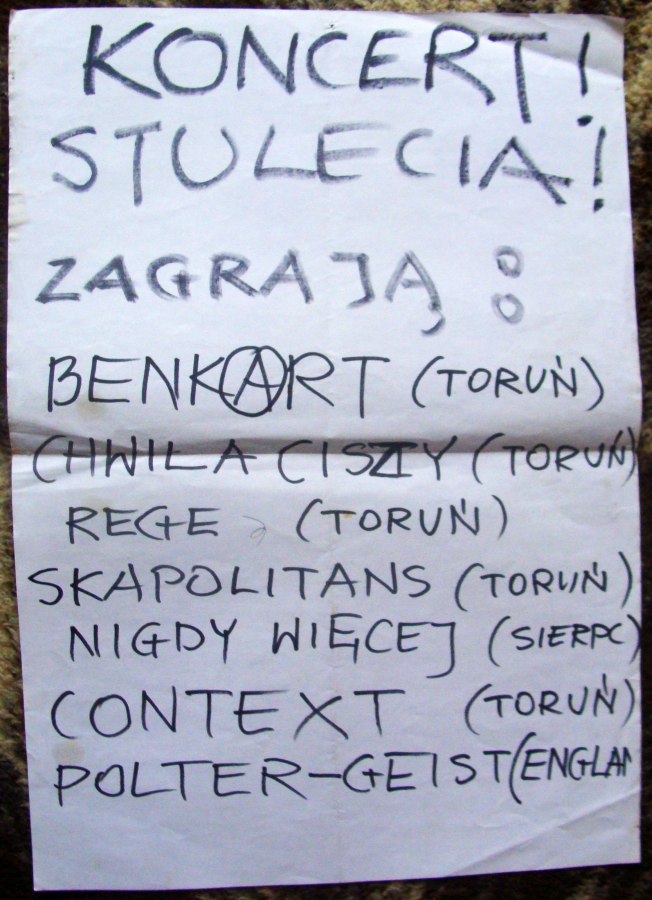 KONCERT!
STULECIA!
ZAGRAJĄ:
BENKART (TORUŃ)
CHWILA CISZY (TORUŃ)
REGE (TORUŃ)
SKAPOLITANS (TORUŃ)
NIGDY WIĘCEJ (SIERPC)
CONTEXT (TORUŃ)
POLTER-GEIST (ENGLAN